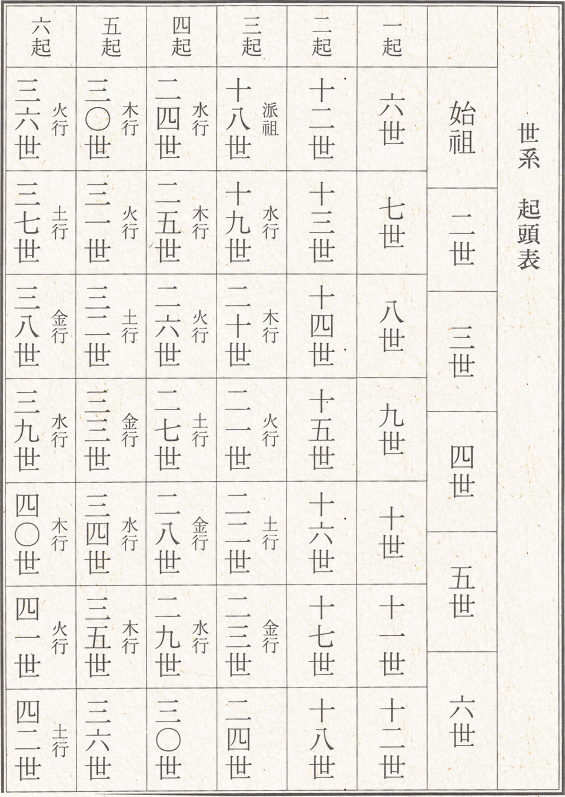 世系 起頭表
始祖
二世
三世
四世
五世
六世
一起
六世
七世
八世
九世
十世
十一世
十二世
二起
十二世
十三世
十四世
十五世
十六世
十七世
十八世
三起
派祖
十八世
水行
十九世
木行
二十世
火行
二一世
土行
二二世
金行
二三世
二四世
四起
水行
二四世
木行
二五世
火行
二六世
土行
二七世
金行
二八世
水行
二九世
三〇世
五起
木行
三〇世
火行
三一世
土行
三二世
金行
三三世
水行
三四世
木行
三五世
三六世
六起
火行
三六世
土行
三七世
金行
三八世
水行
三九世
木行
四〇世
火行
四一世
土行
四二世